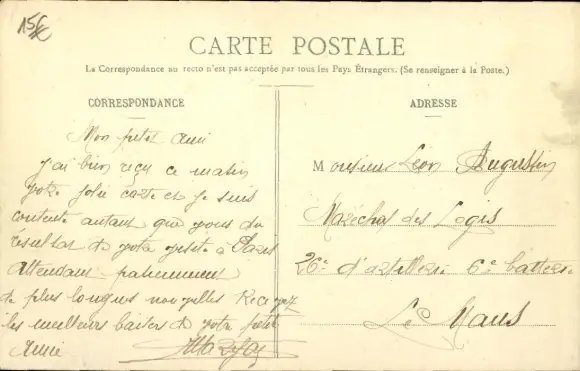 15€
CARTE POSTALE
La Correspondance au recto n'est pas acceptée par tous les Pays Étrangers. (Se renseigner à la Poste.)
CORRESPONDANCE
Mon petit ami
j'ai bien reçu ce matin
votre jolie carte et je suis
contente autant que vous du
résultat de votre visite à Paris
Attendant patiemment
de plus longues nouvelles Recevez
les meilleurs baisers de votre petite
amie
ADRESSE
Monsieur Léon Augustin
Maréchal des Logis
26e d'artillerie 6e batterie
Le Mans